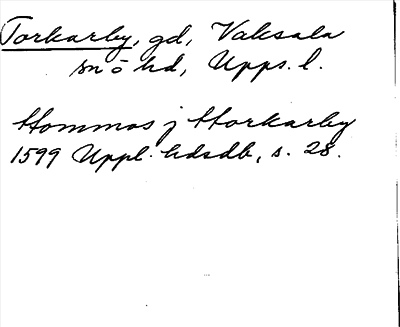 Torkarby, gd, Vaksala
sn o hd, Upps. l.
Thommos j Thorkarby
1599 Uppl. hdsdb, s. 28.